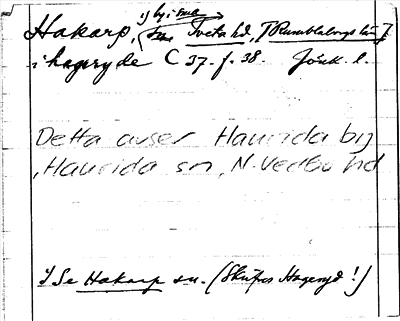 Hakarp, Tveta hd, [Rumblaborgs län]
i hageryde C 37. f. 38. Jönk. l.
Detta avser Haurida by
, Haurida sn, N. Vedbo hd
Se Hakarp sn. (Skrives Hageryd!)